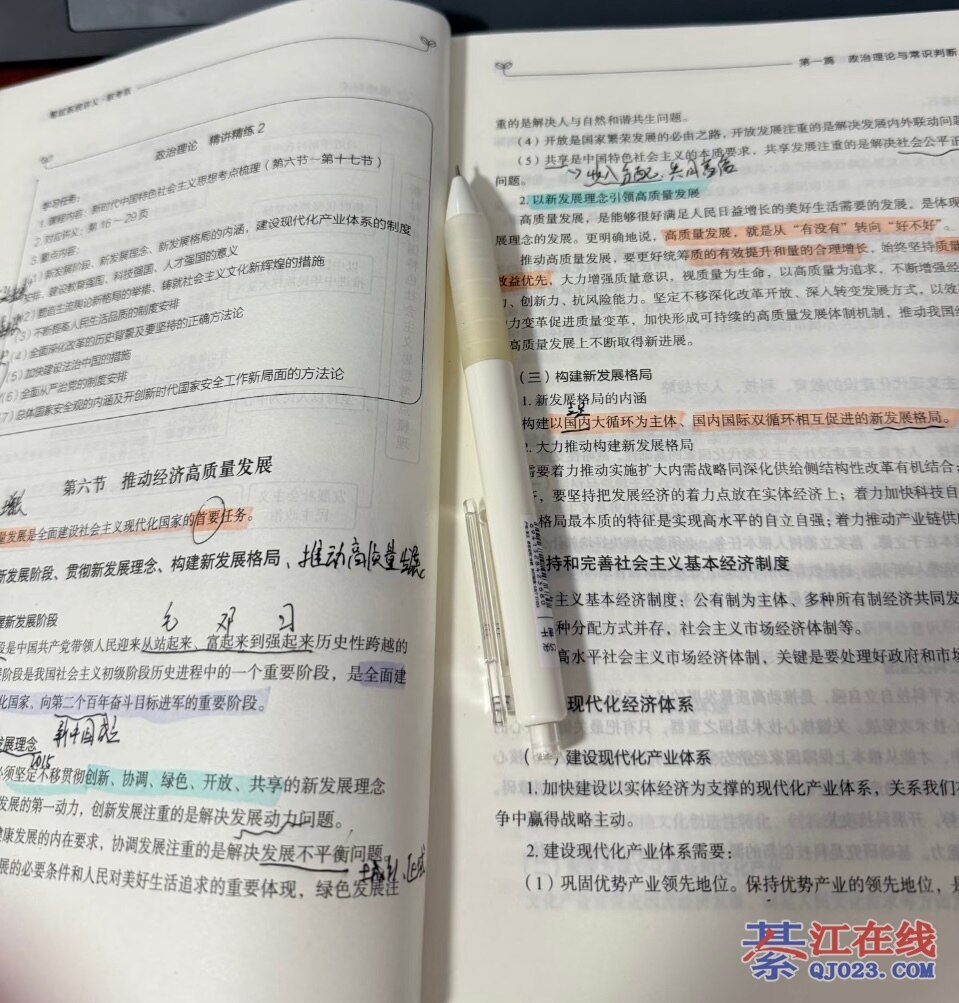 政治理论 精讲精练2
学习任务:
1. 课程内容:新时代中国特色社会主义思想考点梳理(第六节~第十七节)
2. 对应讲义:第16~29页
3. 重点内容:
(1)新发展阶段、新发展理念、新发展格局的内涵,建设现代化产业体系的制度
安排,建设教育强国、科技强国、人才强国的意义
(2)塑造主流舆论新格局的举措、铸就社会主义文化新辉煌的措施
(3)不断提高人民生活品质的制度安排
(4)全面深化改革的历史背景及要坚持的正确方法论
(5)加快建设法治中国的措施
(6)全面从严治党的制度安排
(7)总体国家安全观的内涵及开创新时代国家安全工作新局面的方法论
第六节 推动经济高质量发展
量发展是全面建设社会主义现代化国家的首要任务。
新发展阶段、贯彻新发展理念、构建新发展格局、推动高质量发展
握新发展阶段
毛 邓 习
段是中国共产党带领人民迎来从站起来、富起来到强起来历史性跨越的
阶段是我国社会主义初级阶段历史进程中的一个重要阶段,是全面建
化国家、向第二个百年奋斗目标进军的重要阶段。
发展理念
2015
必须坚定不移贯彻创新、协调、绿色、开放、共享的新发展理念
发展的第一动力,创新发展注重的是解决发展动力问题。
健康发展的内在要求,协调发展注重的是解决发展不平衡问题
展的必要条件和人民对美好生活追求的重要体现,绿色发展注
第一篇 政治理论与常识判断
重的是解决人与自然和谐共生问题。
(4)开放是国家繁荣发展的必由之路,开放发展注重的是解决发展内外联动问题
(5)共享是中国特色社会主义的本质要求,共享发展注重的是解决社会公平正
问题。
→收入分配、共同富裕
2. 以新发展理念引领高质量发展
高质量发展,是能够很好满足人民日益增长的美好生活需要的发展,是体现
展理念的发展。更明确地说,高质量发展,就是从“有没有”转向“好不好”
推动高质量发展,要更好统筹质的有效提升和量的合理增长,始终坚持质量
效益优先,大力增强质量意识,视质量为生命,以高质量为追求,不断增强经
力、创新力、抗风险能力。坚定不移深化改革开放、深入转变发展方式,以效
力变革促进质量变革,加快形成可持续的高质量发展体制机制,推动我国经
高质量发展上不断取得新进展。
(三)构建新发展格局
1. 新发展格局的内涵
构建以国内大循环为主体、国内国际双循环相互促进的新发展格局。
2. 大力推动构建新发展格局
需要着力推动实施扩大内需战略同深化供给侧结构性改革有机结合;
要坚持把发展经济的着力点放在实体经济上;着力加快科技自
格局最本质的特征是实现高水平的自立自强;着力推动产业链供
持和完善社会主义基本经济制度
主义基本经济制度:公有制为主体、多种所有制经济共同发
种分配方式并存,社会主义市场经济体制等。
高水平社会主义市场经济体制,关键是要处理好政府和市场
现代化经济体系
(一)建设现代化产业体系
1. 加快建设以实体经济为支撑的现代化产业体系,关系我们在
争中赢得战略主动。
2. 建设现代化产业体系需要:
(1)巩固优势产业领先地位。保持优势产业的领先地位,是
綦江在线
QJ023.COM